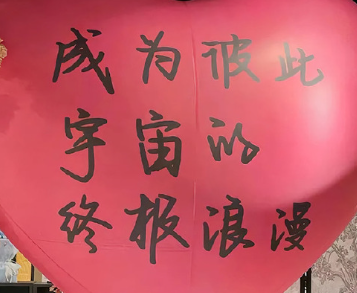 成为彼此
宇宙的
终报浪漫